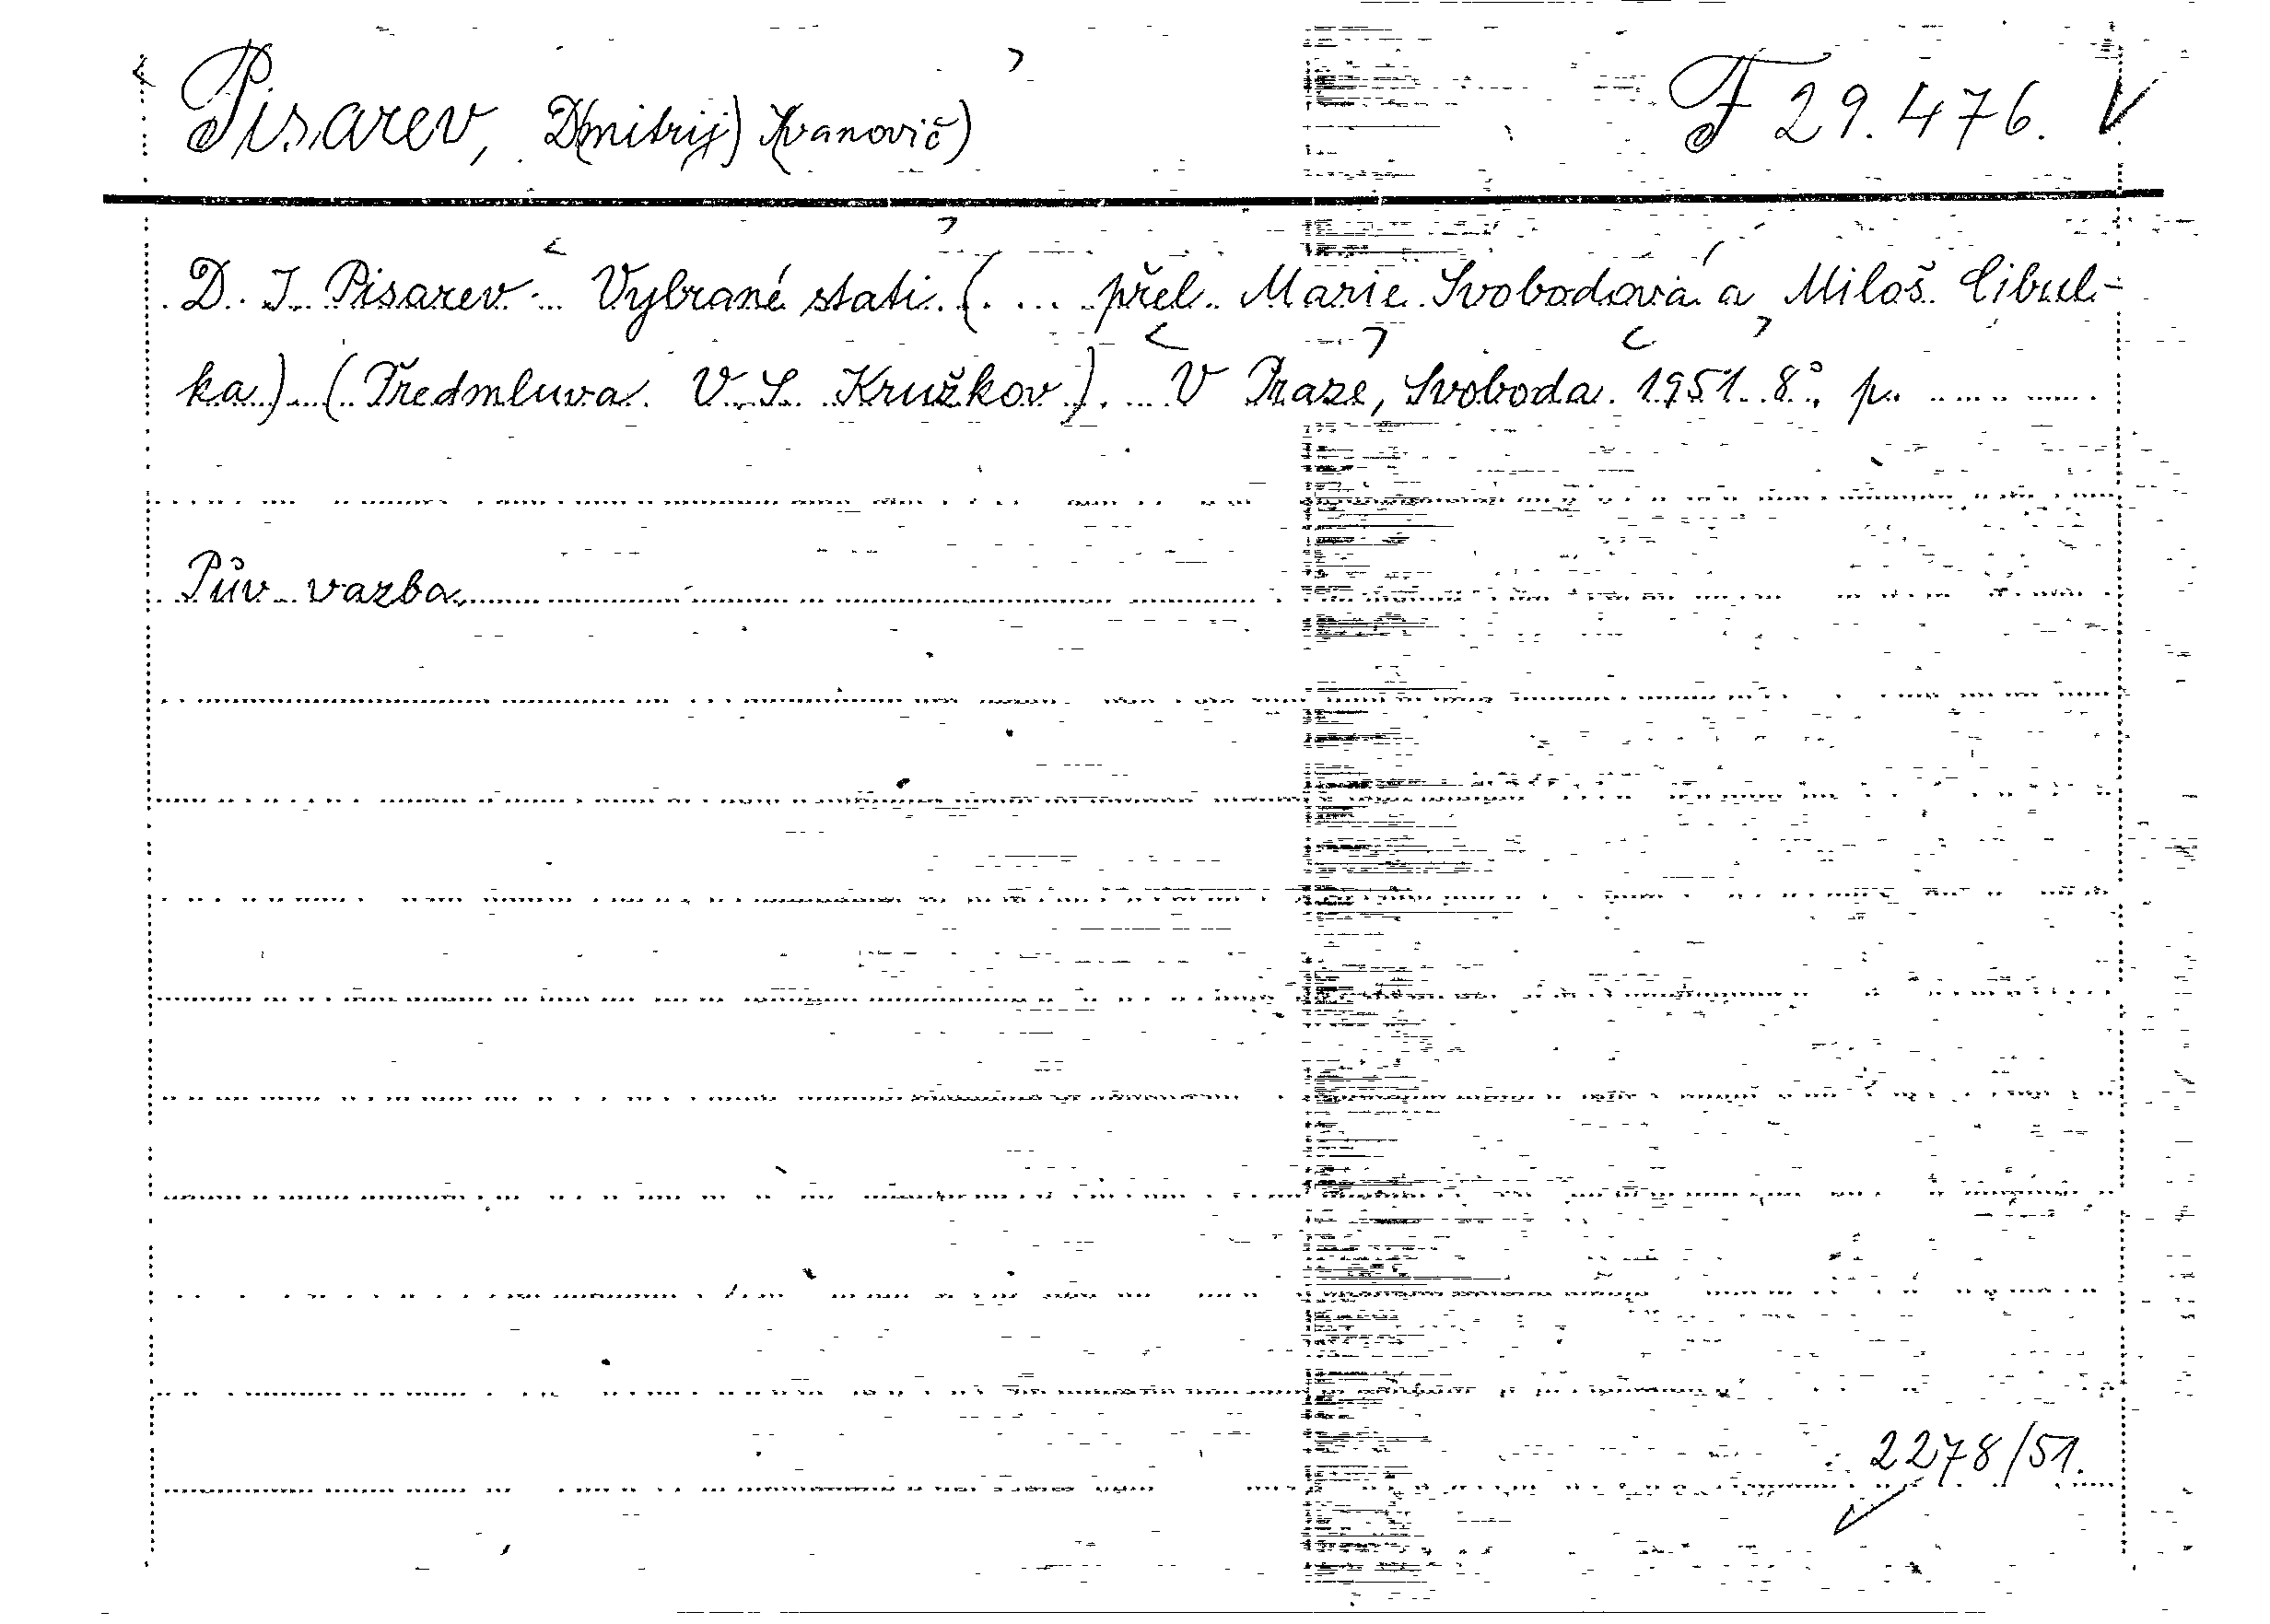 Pisarev, D(mitrij) I(vanovič) F 29.476. V
D. I. Pisarev - Vybrané stati. (. ... přel. Marie Svobodová a Miloš Cibul-
ka) (Předmluva V. S. Kružkov). V Praze, Svoboda. 1951. 8°. p. ...
Pův. vazba.
2278/51.